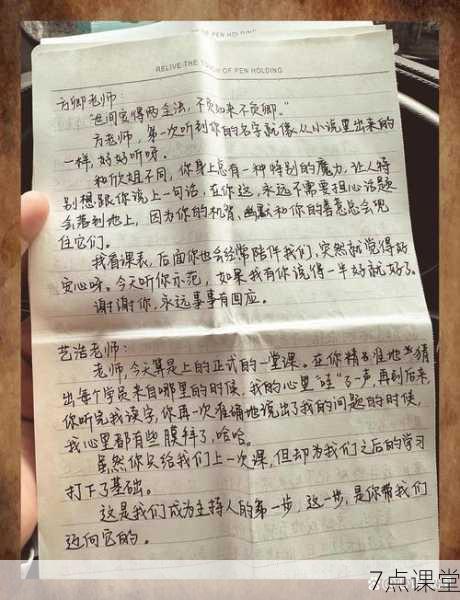 RELIVE THE TOUCH OF PEN HOLDING
方卿老师：
“世间安得两全法，不负如来不负卿。”
方老师，第一次听到你的名字就像从小说里出来的
一样，好好听呀。
和欣姐不同，你身上总有一种特别的魔力，让人特
别想跟你说上一句话，在你这，永远不需要担心话题
会落到地上，因为你的机智、幽默和你的善意总会兜
住它们。
我看课表，后面你也会经常陪伴我们，突然就觉得好
安心呀。今天听你示范，如果我有你说得一半好就好了。
谢谢你，永远事事有回应。
艺洁老师：
老师，今天算是上的正式的一堂课。在你精准地猜
出每个学员来自哪里的时候，我的心里“哇”了一声，再到后来，
你听完我读字，你再一次准确地说出了我的问题的时候，
我心里都有些膜拜了，哈哈。
虽然你只给我们上一次课，但却为我们之后的学习
打下了基础。
这是我们成为主持人的第一步，这一步，是你带我们
迈向它的。
7点课堂